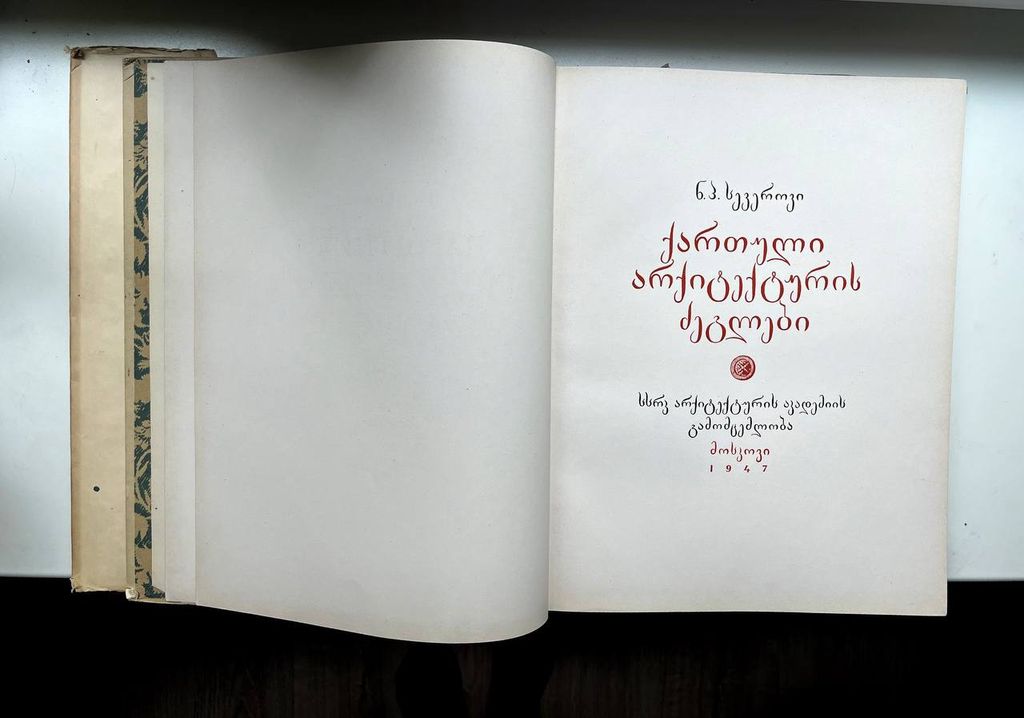 ნ.პ. სევეროვი
ქართული
არქიტექტურის
ძეგლები
სსრკ არქიტექტურის აკადემიის
გამომცემლობა
მოსკოვი
1947